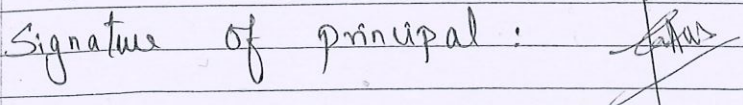 Signature of principal :